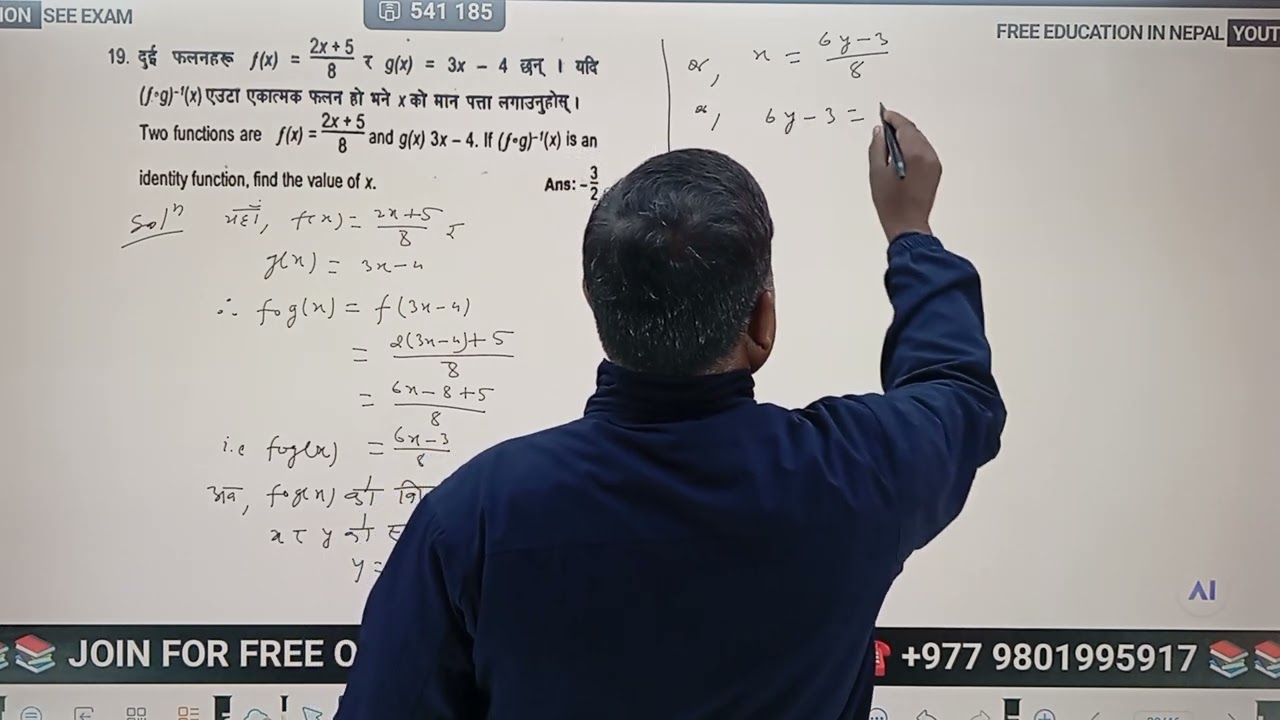 ION SEE EXAM
541 185
FREE EDUCATION IN NEPAL YOUT
19. दुई फलनहरू f(x) = (2x + 5)/8 र g(x) = 3x − 4 छन् । यदि
(f∘g)⁻¹(x) एउटा एकात्मक फलन हो भने x को मान पत्ता लगाउनुहोस् ।
Two functions are f(x) = (2x + 5)/8 and g(x) 3x − 4. If (f∘g)⁻¹(x) is an
identity function, find the value of x. Ans: −3/2
Solⁿ यहाँ, f(x) = (2x+5)/8 र
g(x) = 3x−4
∴ fog(x) = f(3x−4)
= (2(3x−4)+5)/8
= (6x−8+5)/8
i.e fog(x) = (6x−3)/8
अब, fog(x) को
x र y को
y =
or, x = (6y−3)/8
or, 6y−3 =
AI
JOIN FOR FREE O
+977 9801995917